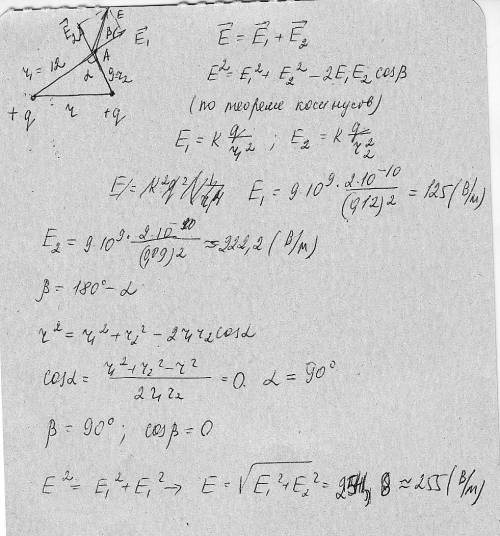 E⃗₂ E
B E⃗₁
r₁ = 12 A
α 9=r₂
+q r +q
E⃗ = E⃗₁ + E⃗₂
E² = E₁² + E₂² − 2E₁E₂ cosβ
(по теореме косинусов)
E₁ = K q/r₁² ; E₂ = K q/r₂²
E₁ = 9·10⁹ · 2·10⁻¹⁰/(0,12)² = 125 (В/м)
E₂ = 9·10⁹ · 2·10⁻¹⁰/(0,09)² ≈ 222,2 (В/м)
β = 180° − α
r² = r₁² + r₂² − 2r₁r₂cosα
cosα = (r₁² + r₂² − r²)/(2r₁r₂) = 0. α = 90°
β = 90° ; cosβ = 0
E² = E₁² + E₁² → E = √(E₁² + E₂²) = 254, 8 ≈ 255 (В/м)